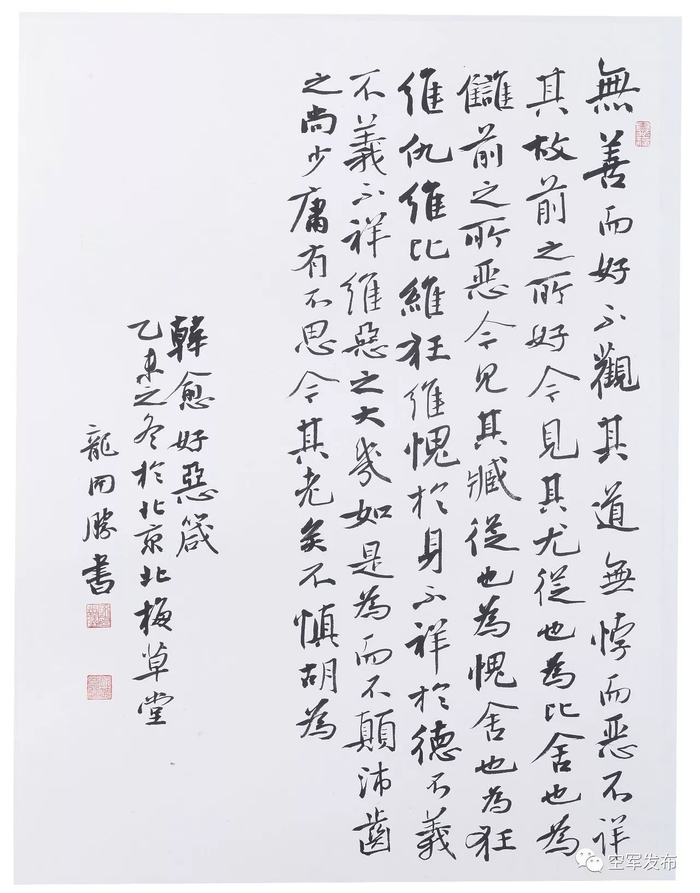 無善而好不觀其道無悖而恶不祥
其故前之所好今見其尤從也為比舍也為
讎前之所恶今見其臧從也為愧舍也為狂
維仇維比維狂維愧於身不祥於德不義
不義不祥維惡之大幾如是為而不顛沛齒
之尚少庸有不思今其老矣不慎胡為
韓愈好惡箴
乙未之冬於北京北梅草堂
龍開勝書
空军发布